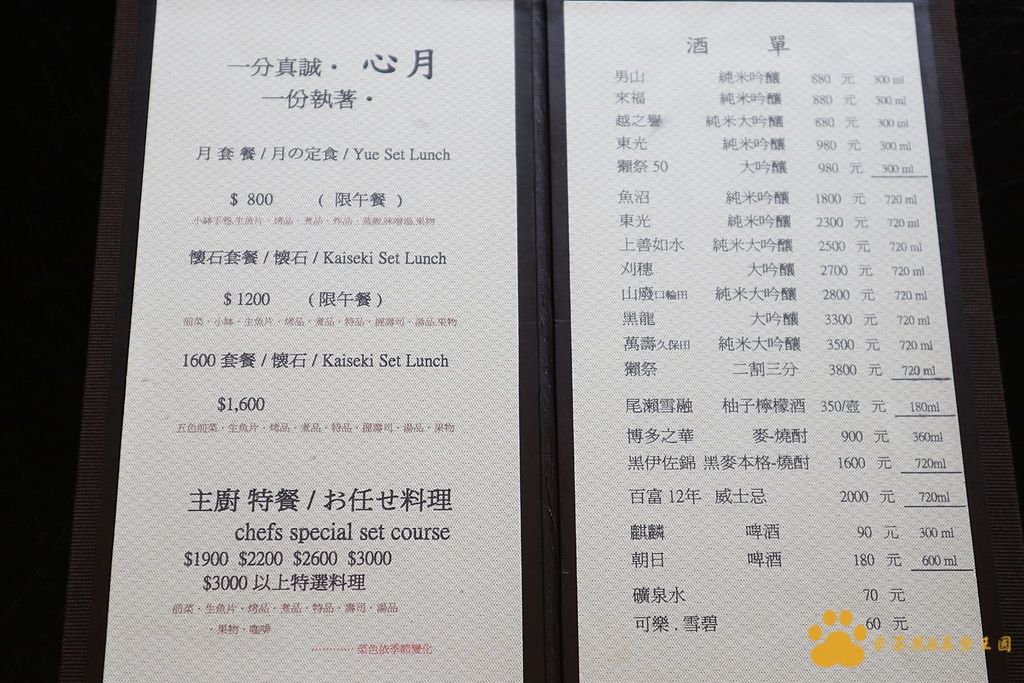 一分真誠・ 心月
一份執著・
月 套 餐 / 月の定食 / Yue Set Lunch
$ 800 ( 限午餐 )
小缽手卷.生魚片・烤品・煮品・炸品・蒸飯.味噌湯.果物
懷石套餐 / 懷石 / Kaiseki Set Lunch
$ 1200 ( 限午餐 )
前菜・小缽・生魚片・烤品・煮品・特品・握壽司・湯品.果物
1600 套餐 / 懷石 / Kaiseki Set Lunch
$1,600
五色前菜・生魚片・烤品・煮品・特品・握壽司・湯品・果物
主廚 特餐 / お任せ料理
chefs special set course
$1900 $2200 $2600 $3000
$3000 以上特選料理
前菜・生魚片・烤品・煮品・特品・壽司・湯品
・果物・咖啡
············ 菜色依季節變化
酒 單
男山 純米吟釀 880 元 300 ml
來福 純米吟釀 880 元 300 ml
越之譽 純米大吟釀 880 元 300 ml
東光 純米吟釀 980 元 300 ml
獺祭 50 大吟釀 980 元 300 ml
魚沼 純米吟釀 1800 元 720 ml
東光 純米吟釀 2300 元 720 ml
上善如水 純米大吟釀 2500 元 720 ml
刈穗 大吟釀 2700 元 720 ml
山廢口輪田 純米大吟釀 2800 元 720 ml
黑龍 大吟釀 3300 元 720 ml
萬壽久保田 純米大吟釀 3500 元 720 ml
獺祭 二割三分 3800 元 720 ml
尾瀨雪融 柚子檸檬酒 350/壺 元 180ml
博多之華 麥-燒酎 900 元 360ml
黑伊佐錦 黑麥本格-燒酎 1600 元 720ml
百富 12年 威士忌 2000 元 720ml
麒麟 啤酒 90 元 300 ml
朝日 啤酒 180 元 600 ml
礦泉水 70 元
可樂 . 雪碧 60 元